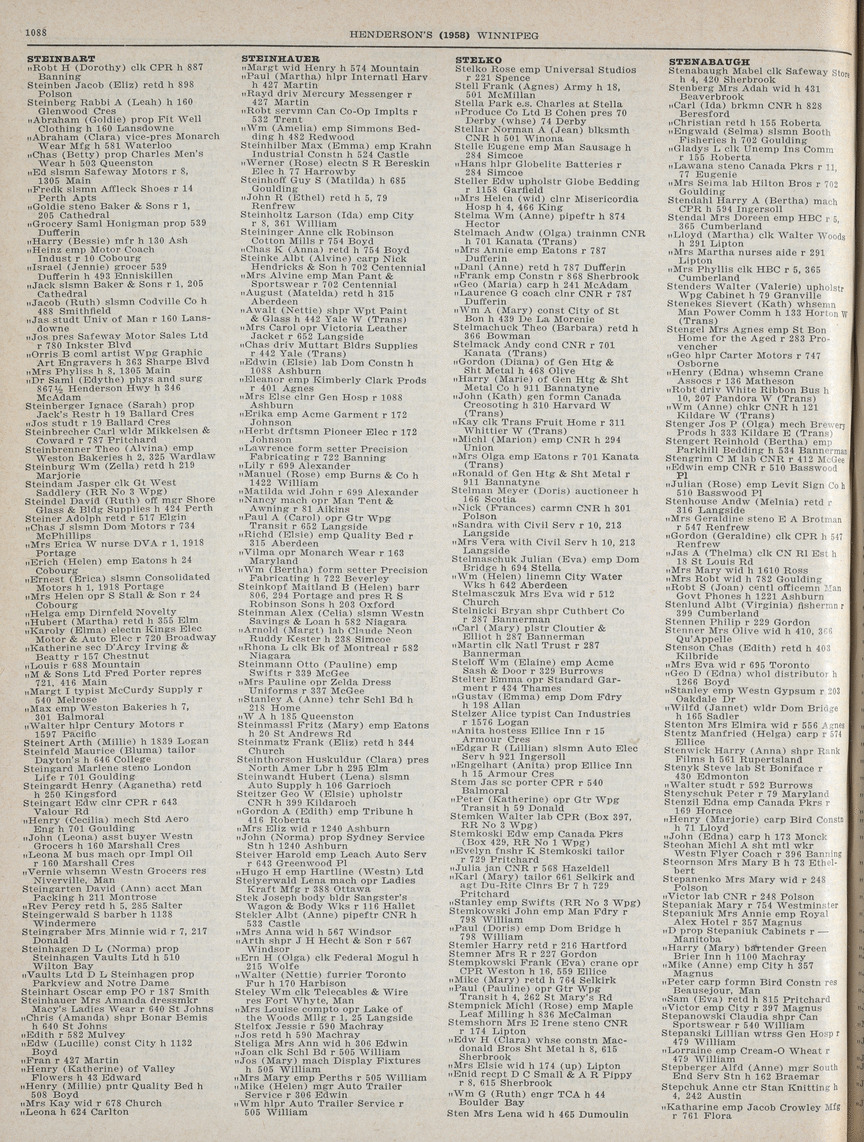 1088
HENDERSON'S (1958) WINNIPEG
STEINBART
"Robt H (Dorothy) clk CPR h 887
Banning
Steinben Jacob (Eliz) retd h 898
Polson
Steinberg Rabbi A (Leah) h 160
Glenwood Cres
"Abraham (Goldie) prop Fit Well
Clothing h 160 Lansdowne
"Abraham (Clara) vice-pres Monarch
Wear Mfg h 581 Waterloo
"Chas (Betty) prop Charles Men's
Wear h 503 Queenston
"Ed slsmn Safeway Motors r 8,
1305 Main
"Fredk slsmn Affleck Shoes r 14
Perth Apts
"Goldie steno Baker & Sons r 1,
205 Cathedral
"Grocery Saml Honigman prop 539
Dufferin
"Harry (Bessie) mfr h 130 Ash
"Heinz emp Motor Coach
Indust r 10 Cobourg
"Israel (Jennie) grocer 539
Dufferin h 493 Enniskillen
"Jack slsmn Baker & Sons r 1, 205
Cathedral
"Jacob (Ruth) slsmn Codville Co h
488 Smithfield
"Jas studt Univ of Man r 160 Lans-
downe
"Jos pres Safeway Motor Sales Ltd
r 780 Inkster Blvd
"Orris B coml artist Wpg Graphic
Art Engravers h 363 Sharpe Blvd
"Mrs Phyliss h 8, 1305 Main
"Dr Saml (Edythe) phys and surg
867½ Henderson Hwy h 346
McAdam
Steinberger Ignace (Sarah) prop
Jack's Restr h 19 Ballard Cres
"Jos studt r 19 Ballard Cres
Steinbrecher Carl wldr Mikkelsen &
Coward r 787 Pritchard
Steinbrenner Theo (Alvina) emp
Weston Bakeries h 2, 325 Wardlaw
Steinburg Wm (Zella) retd h 219
Marjorie
Steindam Jasper clk Gt West
Saddlery (RR No 3 Wpg)
Steindel David (Ruth) off mgr Shore
Glass & Bldg Supplies h 424 Perth
Steiner Adolph retd r 517 Elgin
"Chas J slsmn Dom Motors r 734
McPhillips
"Mrs Erica W nurse DVA r 1, 1918
Portage
"Erich (Helen) emp Eatons h 24
Cobourg
"Ernest (Erica) slsmn Consolidated
Motors h 1, 1918 Portage
"Mrs Helen opr S Stall & Son r 24
Cobourg
"Helga emp Dirnfeld Novelty
"Hubert (Martha) retd h 355 Elm
"Karoly (Elma) electn Kings Elec
Motor & Auto Elec r 720 Broadway
"Katherine sec D'Arcy Irving &
Beatty r 157 Chestnut
"Louis r 688 Mountain
"M & Sons Ltd Fred Porter repres
721, 416 Main
"Margt I typist McCurdy Supply r
540 Melrose
"Max emp Weston Bakeries h 7,
301 Balmoral
"Walter hlpr Century Motors r
1597 Pacific
Steinert Arth (Millie) h 1839 Logan
Steinfeld Maurice (Bluma) tailor
Dayton's h 646 College
Steingard Marlene steno London
Life r 701 Goulding
Steingardt Henry (Aganetha) retd
h 250 Kingsford
Steingart Edw clnr CPR r 643
Valour Rd
"Henry (Cecilia) mech Std Aero
Eng h 701 Goulding
"John (Leona) asst buyer Westn
Grocers h 160 Marshall Cres
"Leona M bus mach opr Impl Oil
r 160 Marshall Cres
"Vernie whsemn Westn Grocers res
Niverville, Man
Steingarten David (Ann) acct Man
Packing h 211 Montrose
"Rev Percy retd h 5, 285 Salter
Steingerwald S barber h 1138
Windermere
Steingraber Mrs Minnie wid r 7, 217
Donald
Steinhagen D L (Norma) prop
Steinhagen Vaults Ltd h 510
Wilton Bay
"Vaults Ltd D L Steinhagen prop
Parkview and Notre Dame
Steinhart Oscar emp PO r 187 Smith
Steinhauer Mrs Amanda dressmkr
Macy's Ladies Wear r 640 St Johns
"Chris (Amanda) shpr Bonar Bemis
h 640 St Johns
"Edith r 582 Mulvey
"Edw (Lucille) const City h 1132
Boyd
"Fran r 427 Martin
"Henry (Katherine) of Valley
Flowers h 43 Edward
"Henry (Millie) pntr Quality Bed h
508 Boyd
"Mrs Kay wid r 678 Church
"Leona h 624 Carlton
STEINHAUER
"Margt wid Henry h 574 Mountain
"Paul (Martha) hlpr Internatl Harv
h 427 Martin
"Rayd driv Mercury Messenger r
427 Martin
"Robt servmn Can Co-Op Implts r
532 Trent
"Wm (Amelia) emp Simmons Bed-
ding h 482 Redwood
Steinhilber Max (Emma) emp Krahn
Industrial Constn h 524 Castle
"Werner (Rose) electn S R Bereskin
Elec h 77 Harrowby
Steinhoff Guy S (Matilda) h 685
Goulding
"John R (Ethel) retd h 5, 79
Renfrew
Steinholtz Larson (Ida) emp City
r 8, 361 William
Steininger Anne clk Robinson
Cotton Mills r 754 Boyd
"Chas K (Anna) retd h 754 Boyd
Steinke Albt (Alvine) carp Nick
Hendricks & Son h 702 Centennial
"Mrs Alvine emp Man Pant &
Sportswear r 702 Centennial
"August (Matelda) retd h 315
Aberdeen
"Awalt (Nettie) shpr Wpt Paint
& Glass h 442 Yale W (Trans)
"Mrs Carol opr Victoria Leather
Jacket r 652 Langside
"Chas driv Muttart Bldrs Supplies
r 442 Yale (Trans)
"Edwin (Elsie) lab Dom Constn h
1088 Ashburn
"Eleanor emp Kimberly Clark Prods
r 401 Agnes
"Mrs Else clnr Gen Hosp r 1088
Ashburn
"Erika emp Acme Garment r 172
Johnson
"Herbt drftsmn Pioneer Elec r 172
Johnson
"Lawrence form setter Precision
Fabricating r 722 Banning
"Lily r 699 Alexander
"Manuel (Rose) emp Burns & Co h
1422 William
"Matilda wid John r 699 Alexander
"Nancy mach opr Man Tent &
Awning r 81 Aikins
"Paul A (Carol) opr Gtr Wpg
Transit r 652 Langside
"Richd (Elsie) emp Quality Bed r
315 Aberdeen
"Vilma opr Monarch Wear r 163
Maryland
"Wm (Bertha) form setter Precision
Fabricating h 722 Beverley
Steinkopf Maitland B (Helen) barr
806, 294 Portage and pres R S
Robinson Sons h 203 Oxford
Steinman Alex (Celia) slsmn Westn
Savings & Loan h 582 Niagara
"Arnold (Margt) lab Claude Neon
Ruddy Kester h 238 Simcoe
"Rhona L clk Bk of Montreal r 582
Niagara
Steinmann Otto (Pauline) emp
Swifts r 339 McGee
"Mrs Pauline opr Zelda Dress
Uniforms r 337 McGee
"Stanley A (Anne) tchr Schl Bd h
218 Home
"W A h 185 Queenston
Steinmassl Fritz (Mary) emp Eatons
h 20 St Andrews Rd
Steinmatz Frank (Eliz) retd h 344
Church
Steinthorson Huskuldur (Clara) pres
North Amer Lbr h 295 Elm
Steinwandt Hubert (Lena) slsmn
Auto Supply h 106 Garrioch
Steitzer Geo W (Elsie) upholstr
CNR h 399 Kildaroch
"Gordon A (Edith) emp Tribune h
416 Roberta
"Mrs Eliz wid r 1240 Ashburn
"John (Norma) prop Sydney Service
Stn h 1240 Ashburn
Steiver Harold emp Leach Auto Serv
r 643 Greenwood Pl
"Hugo H emp Hartline (Westn) Ltd
Steiyerwald Lena mach opr Ladies
Kraft Mfg r 388 Ottawa
Stek Joseph body bldr Sangster's
Wagon & Body Wks r 116 Hallet
Stekler Albt (Anne) pipeftr CNR h
533 Castle
"Mrs Anna wid h 567 Windsor
"Arth shpr J H Hecht & Son r 567
Windsor
"Ern H (Olga) clk Federal Mogul h
215 Wolfe
"Walter (Nettie) furrier Toronto
Fur h 170 Harbison
Steley Wm clk Telecables & Wire
res Fort Whyte, Man
"Mrs Louise compto opr Lake of
the Woods Mllg r 1, 25 Langside
Stelfox Jessie r 590 Machray
"Jos retd h 590 Machray
Steliga Mrs Ann wid h 306 Edwin
"Joan clk Schl Bd r 505 William
"Jos (Mary) mach Display Fixtures
h 505 William
"Mrs Mary emp Perths r 505 William
"Mike (Helen) mgr Auto Trailer
Service r 306 Edwin
"Wm hlpr Auto Trailer Service r
505 William
STELKO
Stelko Rose emp Universal Studios
r 221 Spence
Stell Frank (Agnes) Army h 18,
501 McMillan
Stella Park e.s. Charles at Stella
"Produce Co Ltd B Cohen pres 70
Derby (whse) 74 Derby
Stellar Norman A (Jean) blksmth
CNR h 501 Winona
Stelle Eugene emp Man Sausage h
284 Simcoe
"Hans hlpr Globelite Batteries r
284 Simcoe
Steller Edw upholstr Globe Bedding
r 1158 Garfield
"Mrs Helen (wid) clnr Misericordia
Hosp h 4, 466 King
Stelma Wm (Anne) pipeftr h 874
Hector
Stelmach Andw (Olga) trainmn CNR
h 701 Kanata (Trans)
"Mrs Annie emp Eatons r 787
Dufferin
"Dani (Anne) retd h 787 Dufferin
"Frank emp Constn r 868 Sherbrook
"Geo (Maria) carp h 241 McAdam
"Laurence G coach clnr CNR r 787
Dufferin
"Wm A (Mary) const City of St
Bon h 439 De La Morenie
Stelmachuck Theo (Barbara) retd h
366 Bowman
Stelmack Andy cond CNR r 701
Kanata (Trans)
"Gordon (Diana) of Gen Htg &
Sht Metal h 468 Olive
"Harry (Marie) of Gen Htg & Sht
Metal Co h 911 Bannatyne
"John (Kath) gen formn Canada
Creosoting h 310 Harvard W
(Trans)
"Kay clk Trans Fruit Home r 311
Whittier W (Trans)
"Michl (Marion) emp CNR h 294
Union
"Mrs Olga emp Eatons r 701 Kanata
(Trans)
"Ronald of Gen Htg & Sht Metal r
911 Bannatyne
Stelman Meyer (Doris) auctioneer h
166 Scotia
"Nick (Frances) carmn CNR h 301
Polson
"Sandra with Civil Serv r 10, 213
Langside
"Mrs Vera with Civil Serv h 10, 213
Langside
Stelmaschuk Julian (Eva) emp Dom
Bridge h 694 Stella
"Wm (Helen) linemn City Water
Wks h 642 Aberdeen
Stelmasczuk Mrs Eva wid r 512
Church
Stelnicki Bryan shpr Cuthbert Co
r 287 Bannerman
"Carl (Mary) plstr Cloutier &
Elliot h 287 Bannerman
"Martin clk Natl Trust r 287
Bannerman
Steloff Wm (Elaine) emp Acme
Sash & Door r 329 Burrows
Stelter Emma opr Standard Gar-
ment r 434 Thames
"Gustav (Emma) emp Dom Fdry
h 198 Allan
Stelzer Alice typist Can Industries
r 1576 Logan
"Anita hostess Ellice Inn r 15
Armour Cres
"Edgar R (Lillian) slsmn Auto Elec
Serv h 921 Ingersoll
"Engelhart (Anita) prop Ellice Inn
h 15 Armour Cres
Stem Jas sc porter CPR r 540
Balmoral
"Peter (Katherine) opr Gtr Wpg
Transit h 59 Donald
Stemken Walter lab CPR (Box 397,
RR No 3 Wpg)
Stemkoski Edw emp Canada Pkrs
(Box 429, RR No 1 Wpg)
"Evelyn fnshr K Stemkoski tailor
r 729 Pritchard
"Julia jan CNR r 568 Hazeldell
"Karl (Mary) tailor 661 Selkirk and
agt Du-Rite Clnrs Br 7 h 729
Pritchard
"Stanley emp Swifts (RR No 3 Wpg)
Stemkowski John emp Man Fdry r
798 William
"Paul (Doris) emp Dom Bridge h
798 William
Stemler Harry retd r 216 Hartford
Stemner Mrs R r 227 Gordon
Stempkowski Frank (Eva) crane opr
CPR Weston h 16, 559 Ellice
"Mike (Mary) retd h 764 Selkirk
"Paul (Pauline) opr Gtr Wpg
Transit r 4, 262 St Mary's Rd
Stempnick Michl (Rose) emp Maple
Leaf Milling h 836 McCalman
Stemshorn Mrs E Irene steno CNR
r 174 Lipton
"Edw H (Clara) whse constn Mac-
donald Bros Sht Metal h 8, 615
Sherbrook
"Mrs Elsie wid h 174 (up) Lipton
"Enid recpt D C Small & A R Pippy
r 8, 615 Sherbrook
"Wm G (Ruth) engr TCA h 44
Boulder Bay
Sten Mrs Lena wid h 465 Dumoulin
STENABAUGH
Stenabaugh Mabel clk Safeway Store
h 4, 420 Sherbrook
Stenberg Mrs Adah wid h 431
Beaverbrook
"Carl (Ida) brkmn CNR h 828
Beresford
"Christian retd h 155 Roberta
"Engwald (Selma) slsmn Booth
Fisheries h 702 Goulding
"Gladys L clk Unemp Ins Comm
r 155 Roberta
"Lawana steno Canada Pkrs r 11,
77 Eugenie
"Mrs Seima lab Hilton Bros r 702
Goulding
Stendahl Harry A (Bertha) mach
CPR h 594 Ingersoll
Stendal Mrs Doreen emp HBC r 5,
365 Cumberland
"Lloyd (Martha) clk Walter Woods
h 291 Lipton
"Mrs Martha nurses aide r 291
Lipton
"Mrs Phyllis clk HBC r 5, 365
Cumberland
Stenders Walter (Valerie) upholstr
Wpg Cabinet h 79 Granville
Stenekes Sievert (Kath) whsemn
Man Power Comm h 133 Horton W
(Trans)
Stengel Mrs Agnes emp St Bon
Home for the Aged r 283 Pro-
vencher
"Geo hlpr Carter Motors r 747
Osborne
"Henry (Edna) whsemn Crane
Assocs r 136 Matheson
"Robt driv White Ribbon Bus h
10, 207 Pandora W (Trans)
"Wm (Anne) chkr CNR h 121
Kildare W (Trans)
Stenger Jos P (Olga) mech Brewery
Prods h 333 Kildare E (Trans)
Stengert Reinhold (Bertha) emp
Parkhill Bedding h 534 Bannerman
Stengrim C M lab CNR r 412 McGee
"Edwin emp CNR r 510 Basswood
Pl
"Julian (Rose) emp Levit Sign Co h
510 Basswood Pl
Stenhouse Andw (Melnia) retd r
316 Langside
"Mrs Geraldine steno E A Brotman
r 547 Renfrew
"Gordon (Geraldine) clk CPR h 547
Renfrew
"Jas A (Thelma) clk CN Rl Est h
18 St Louis Rd
"Mrs Mary wid h 1610 Ross
"Mrs Robt wid h 782 Goulding
"Robt S (Joan) centl officemn Man
Govt Phones h 1221 Ashburn
Stenlund Albt (Virginia) fishermn r
399 Cumberland
Stennen Philip r 229 Gordon
Stenner Mrs Olive wid h 410, 366
Qu'Appelle
Stenson Chas (Edith) retd h 403
Kilbride
"Mrs Eva wid r 695 Toronto
"Geo D (Edna) whol distributor h
1266 Boyd
"Stanley emp Westn Gypsum r 203
Oakdale Dr
"Wilfd (Jannet) wldr Dom Bridge
h 165 Sadler
Stenton Mrs Elmira wid r 556 Agnes
Stentz Manfried (Helga) carp r 574
Ellice
Stenwick Harry (Anna) shpr Rank
Films h 561 Rupertsland
Stenyk Steve lab St Boniface r
430 Edmonton
"Walter studt r 592 Burrows
Stenyschuk Peter r 79 Maryland
Stenzil Edna emp Canada Pkrs r
169 Horace
"Henry (Marjorie) carp Bird Constn
h 71 Lloyd
"John (Edna) carp h 173 Monck
Steohan Michl A sht mtl wkr
Westn Flyer Coach r 396 Banning
Steornson Mrs Mary B h 73 Ethel-
bert
Stepanenko Mrs Mary wid r 248
Polson
"Victor lab CNR r 248 Polson
Stepaniak Mary r 754 Westminster
Stepaniuk Mrs Annie emp Royal
Alex Hotel r 357 Magnus
"D prop Stepaniuk Cabinets r —
Manitoba
"Harry (Mary) bartender Green
Brier Inn h 1100 Machray
"Mike (Anne) emp City h 357
Magnus
"Peter carp formn Bird Constn res
Beausejour, Man
"Sam (Eva) retd h 815 Pritchard
"Victor emp City r 397 Magnus
Stepanowski Claudia shpr Can
Sportswear r 540 William
Stepanski Lillian wtrss Gen Hosp r
479 William
"Lorraine emp Cream-O Wheat r
479 William
Stepberger Alfd (Anne) mgr South
End Serv Stn h 162 Braemar
Stepchuk Anne ctr Stan Knitting h
4, 242 Austin
"Katharine emp Jacob Crowley Mfg
r 761 Flora